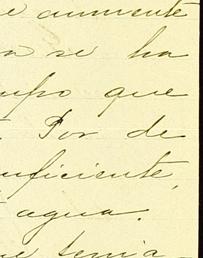 e aumente
a se ha
mpo que
Por de
uficiente,
agua.
ue tenia